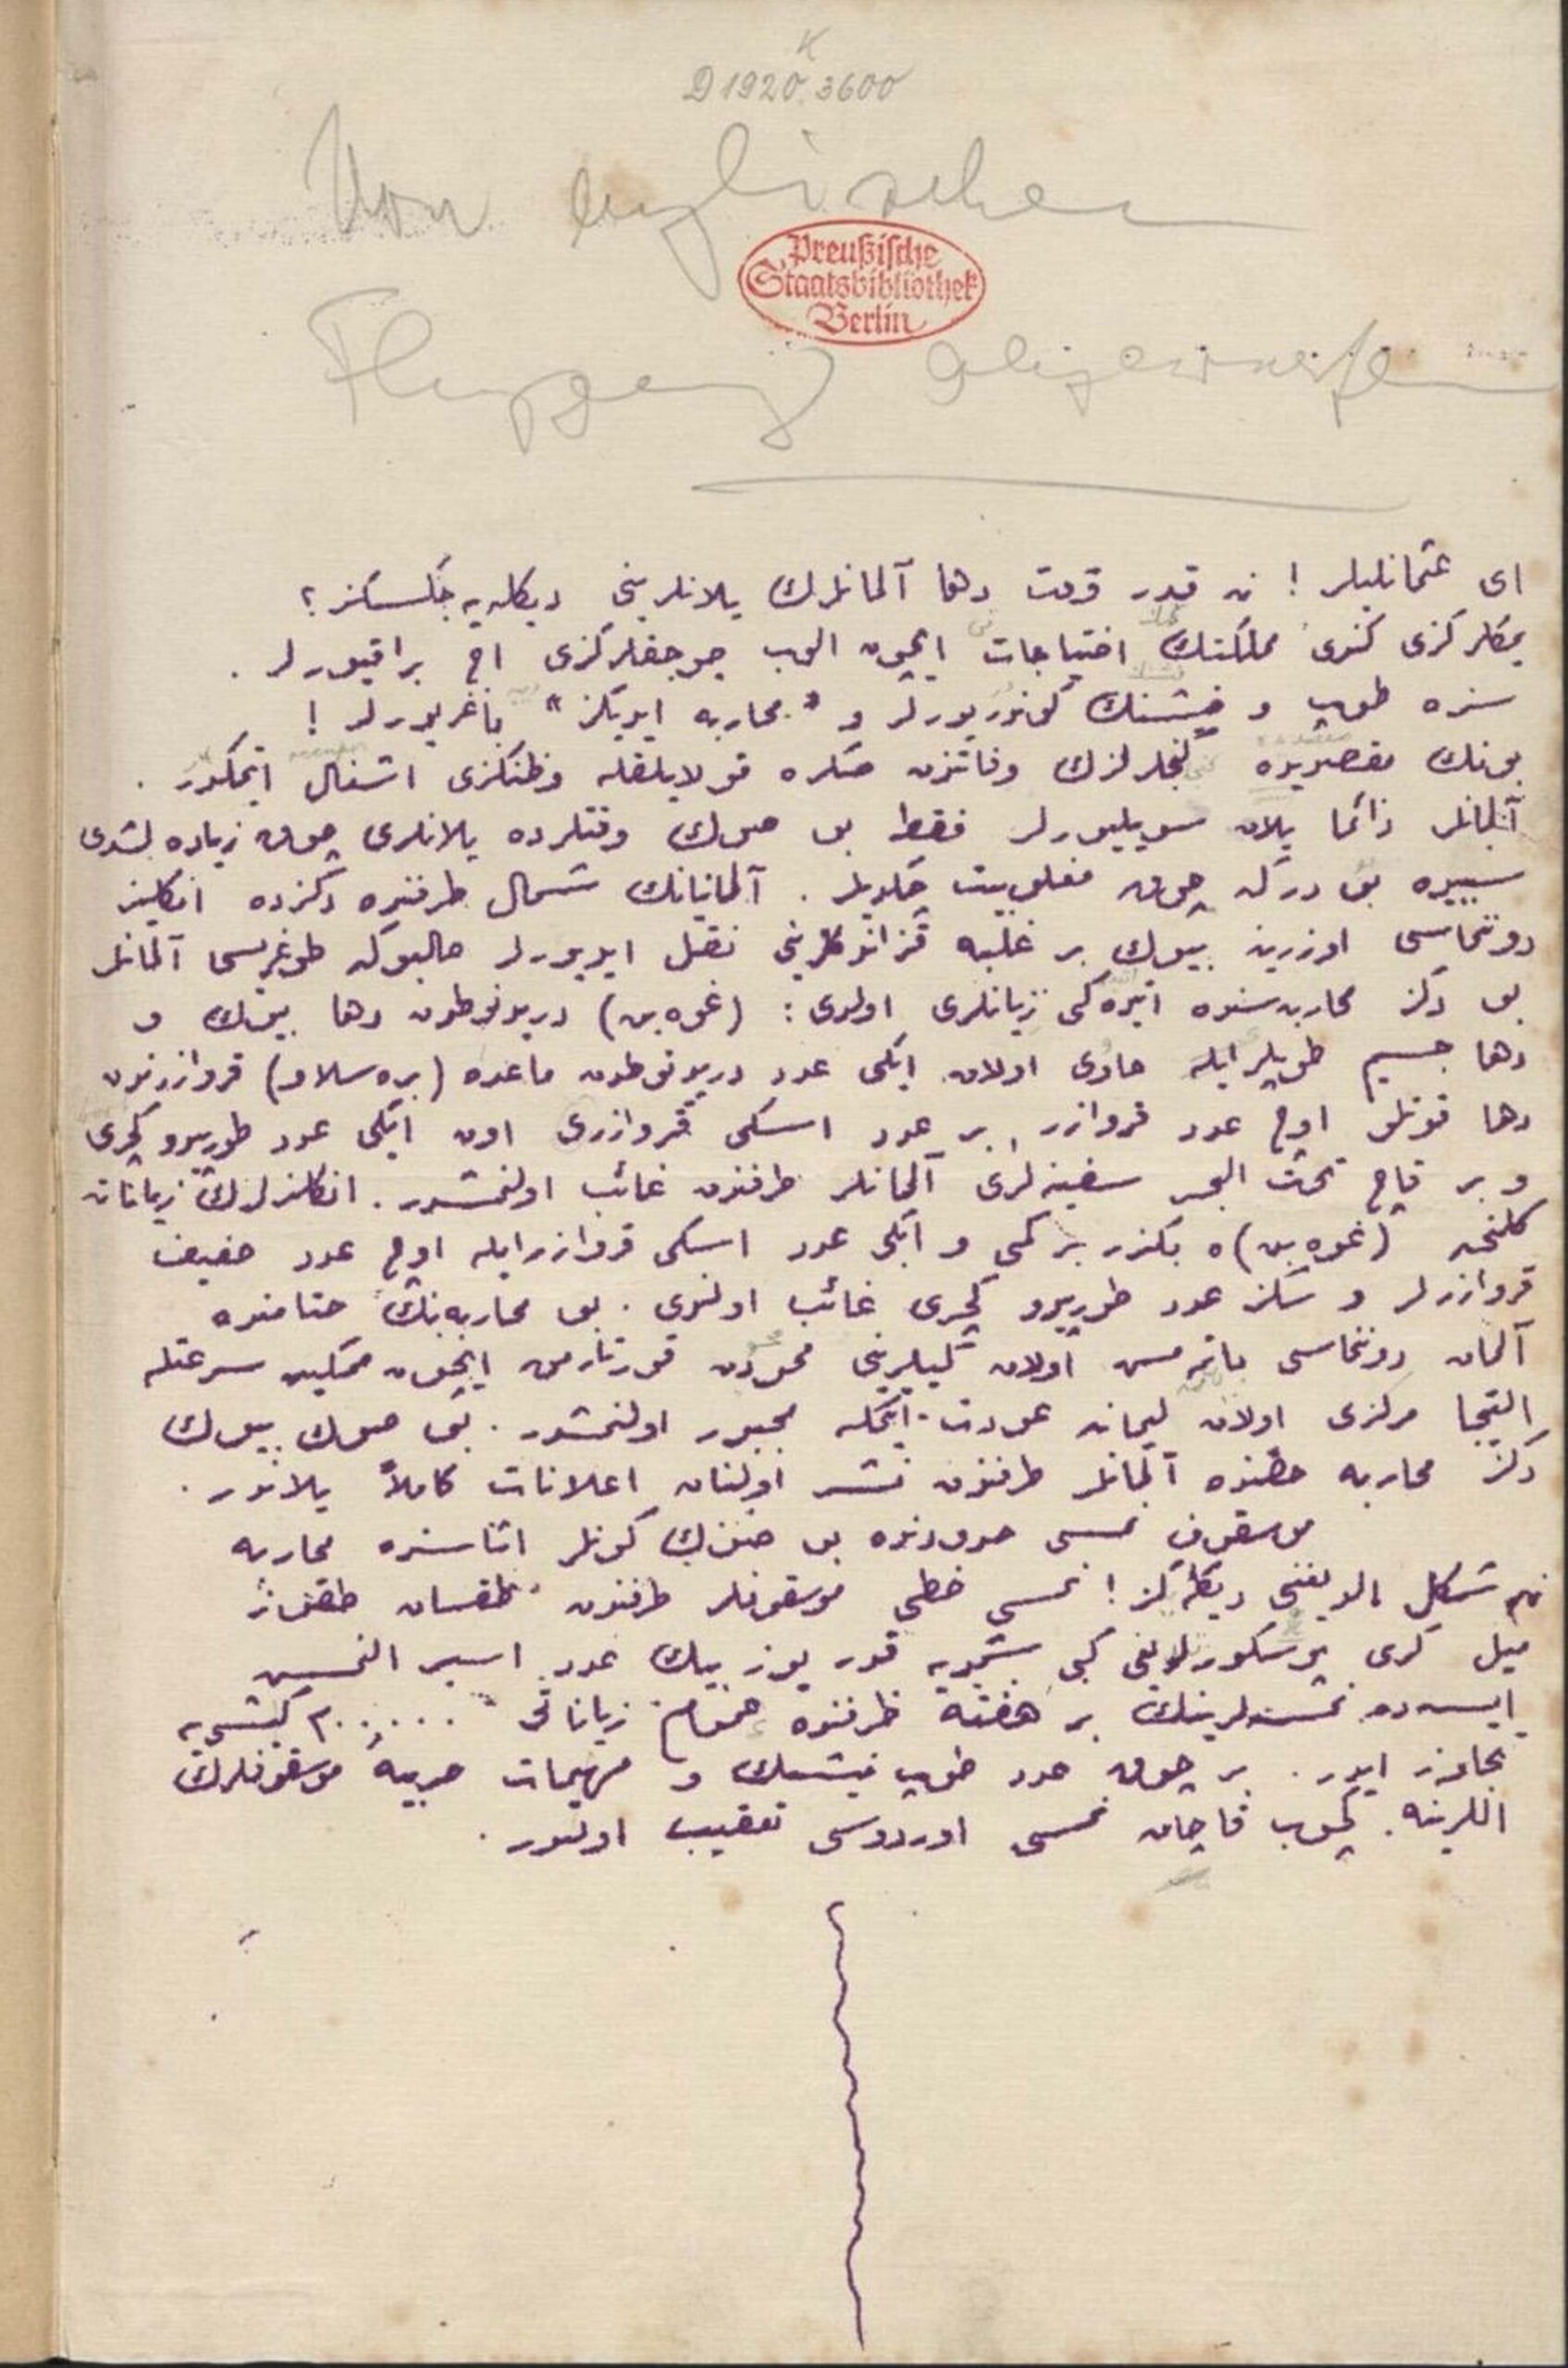 D 1920. 3600
Von englischen
Preußische
Staatsbibliothek
Berlin
Flugzeug abgeworfen
ای عثمانلیلر ! نه قدر وقت دها آلمانلرك یلانلرینی دیكله‌یه‌جكسكز ؟
یمكلركزی كندی مملكتك احتیاجات ایچون الوب چوجقلركزی اچ براقیورلر .
سزه طوپ و فیشنك كوندریورلر و " محاربه ایدیكز " باغریورلر !
بونك مقصدیده كنجلرلزك وفاتندن صكره قولایلقله وطنكزی اشغال ایتمكدر .
آلمانلر دائما یلان سویلیورلر فقط بو صوك وقتلرده یلانلری چوق زیاده‌لشدی
سببیده بودركه چوق مغلوبیت چكدیلر . آلمانیانك شمال طرفنده دكزده انكلیز
دوننماسی اوزرینه بیوك بر غلبه قزاندقلرینی نقل ایدیورلر حالبوكه طوغریسی آلمانلر
بو دكز محاربه‌سنده اتیده‌كی زیانلری اولدی : (غوه‌بن) دریدنوطدن دها بیوك و
دها جسیم طوپلر ایله حاوی اولان ایكی عدد دریدنوطدن ماعدا (بره‌سلاو) قروازردن
دها قوتلو اوچ عدد قروازر , بر عدد اسكی قروازری اون ایكی عدد طورپیدو كچری
و بر قاچ تحت البحر سفینه‌لری آلمانلر طرفندن غائب اولنمشدر . انكلیزلرك زیاناته
كلنجه (غوه‌بن)ه بكزر بر كمی و ایكی عدد اسكی قروازر ایله اوچ عدد خفیف
قروازرلر و سكز عدد طورپیدو كچری غائب اولندی . بو محاربه‌نك ختامنده
آلمان دوننماسی باتمامش اولان كمیلرینی محودن قورتارمق ایچون ممكن سرعتله
التجا مركزی اولان لیمانه عودت ایتمكه مجبور اولنمشدر . بو صوك بیوك
دكز محاربه حقنده آلمانلر طرفندن نشر اولنان اعلانات كاملاً یلاندر .
موسقوف نمسه حدودنده بو صوك كونلر اثناسنده محاربه
نه شكل الدیغنی دیكله‌كز ! نمسه خطی موسقوفلر طرفندن طقسان طقوز
میل كری پوسكورلدیغی كبی شمدیه قدر یوز بیك عدد اسیر النمش
ایسه‌ده نمسه‌لرینك بر هفته ظرفنده عموم زیاناتی ٣٠٠٠٠٠ كیشی‌یه
تجاوز ایدر . بر چوق عدد طوپ فیشنك و مهمات حربیه موسقوفلرك
اللرینه كچوب قاچان نمسه اوردوسی تعقیب اولنور .